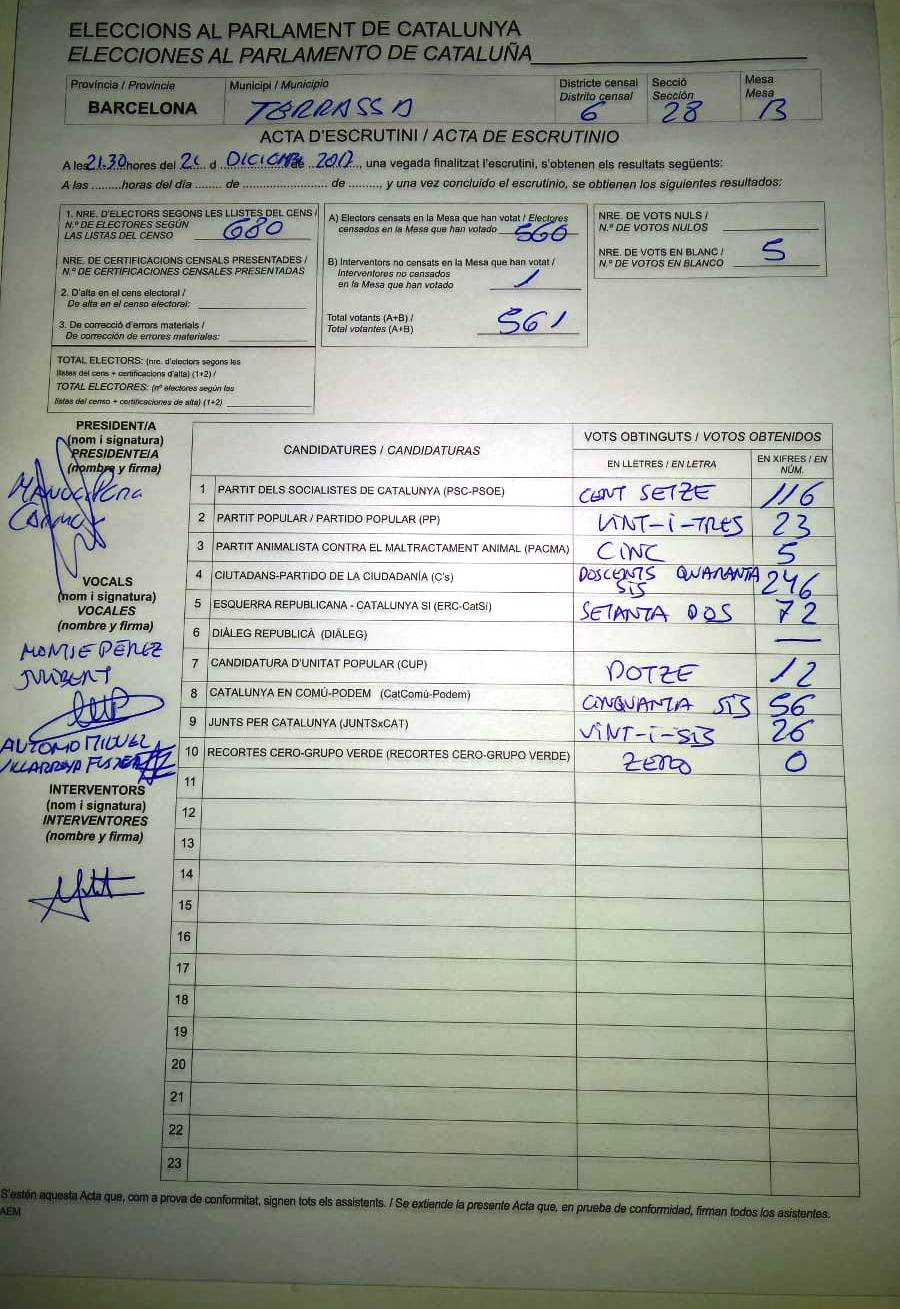 ELECCIONS AL PARLAMENT DE CATALUNYA
ELECCIONES AL PARLAMENTO DE CATALUÑA
Província / Provincia
BARCELONA
Municipi / Municipio
TERRASSA
Districte censal
Distrito censal
6
Secció
Sección
28
Mesa
Mesa
B
ACTA D'ESCRUTINI / ACTA DE ESCRUTINIO
A les 21.30 hores del 21 d DICIEMBRE de 2017, una vegada finalitzat l'escrutini, s'obtenen els resultats següents:
A las .........horas del día ........ de ......................... de .........., y una vez concluido el escrutinio, se obtienen los siguientes resultados:
1. NRE. D'ELECTORS SEGONS LES LLISTES DEL CENS /
N.º DE ELECTORES SEGÚN
LAS LISTAS DEL CENSO 680
NRE. DE CERTIFICACIONS CENSALS PRESENTADES /
N.º DE CERTIFICACIONES CENSALES PRESENTADAS
2. D'alta en el cens electoral /
De alta en el censo electoral:
3. De correcció d'errors materials /
De corrección de errores materiales:
TOTAL ELECTORS: (nre. d'electors segons les
llistes del cens + certificacions d'alta) (1+2) /
TOTAL ELECTORES: (nº electores según las
listas del censo + certificaciones de alta) (1+2)
A) Electors censats en la Mesa que han votat / Electores
censados en la Mesa que han votado 560
B) Interventors no censats en la Mesa que han votat /
Interventores no censados
en la Mesa que han votado 1
Total votants (A+B) /
Total votantes (A+B) 561
NRE. DE VOTS NULS /
N.º DE VOTOS NULOS
NRE. DE VOTS EN BLANC /
N.º DE VOTOS EN BLANCO 5
PRESIDENT/A
(nom i signatura)
PRESIDENTE/A
(nombre y firma)
VOCALS
(nom i signatura)
VOCALES
(nombre y firma)
MONTSE PÉREZ
ANTONIO MIGUEL
VILLARROYA FUSTER
INTERVENTORS
(nom i signatura)
INTERVENTORES
(nombre y firma)
CANDIDATURES / CANDIDATURAS
VOTS OBTINGUTS / VOTOS OBTENIDOS
EN LLETRES / EN LETRA
EN XIFRES / EN NÚM.
1 PARTIT DELS SOCIALISTES DE CATALUNYA (PSC-PSOE) CENT SETZE 116
2 PARTIT POPULAR / PARTIDO POPULAR (PP) VINT-I-TRES 23
3 PARTIT ANIMALISTA CONTRA EL MALTRACTAMENT ANIMAL (PACMA) CINC 5
4 CIUTADANS-PARTIDO DE LA CIUDADANÍA (C's) DOSCENTS QUARANTA SIS 246
5 ESQUERRA REPUBLICANA - CATALUNYA SI (ERC-CatSí) SETANTA DOS 72
6 DIÀLEG REPUBLICÀ (DIÀLEG) —
7 CANDIDATURA D'UNITAT POPULAR (CUP) DOTZE 12
8 CATALUNYA EN COMÚ-PODEM (CatComú-Podem) CINQUANTA SIS 56
9 JUNTS PER CATALUNYA (JUNTSxCAT) VINT-I-SIS 26
10 RECORTES CERO-GRUPO VERDE (RECORTES CERO-GRUPO VERDE) ZERO 0
11
12
13
14
15
16
17
18
19
20
21
22
23
S'estén aquesta Acta que, com a prova de conformitat, signen tots els assistents. / Se extiende la presente Acta que, en prueba de conformidad, firman todos los asistentes.
AEM